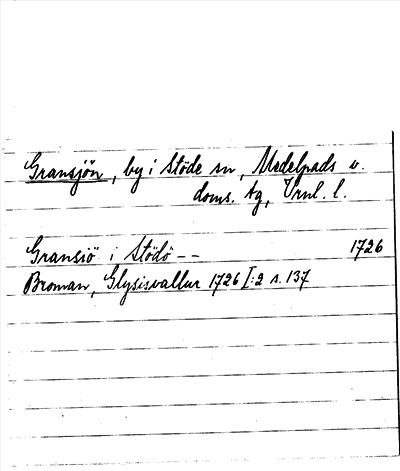 Gransjön, by i Stöde sn, Medelpads v.
doms. tg, Vrnl. l.
Gransiö i Stödö -- 1726
Broman, Glysisvallur 1726 I:2 s. 137